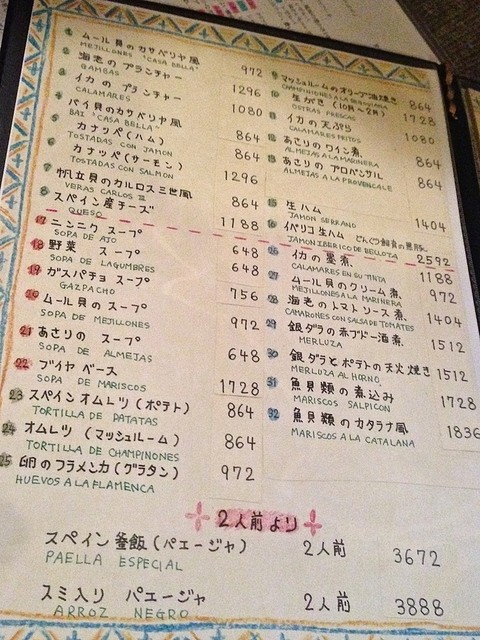 1 ムール貝のカサベリヤ風 972
MEJILLONES "CASA BELLA"
2 海老のプランチャー 1296
GAMBAS
3 イカの プランチャー 1080
CALAMARES
4 バイ貝のカサベリヤ風 864
BAI "CASA BELLA"
5 カナッペ(ハム) 864
TOSTADAS CON JAMON
6 カナッペ(サーモン) 1296
TOSTADAS CON SALMON
7 帆立貝のカルロス三世風 864
VERAS CARLOS III
8 スペイン産チーズ 1188
QUESO
17 ニンニク スープ 648
SOPA DE AJO
18 野菜 スープ 648
SOPA DE LAGUMBRES
19 ガスパチョ スープ 756
GAZPACHO
20 ムール貝の スープ 972
SOPA DE MEJILLONES
21 あさりの スープ 648
SOPA DE ALMEJAS
22 ブイヤベース 1728
SOPA DE MARISCOS
23 スペインオムレツ(ポテト) 864
TORTILLA DE PATATAS
24 オムレツ (マッシュルーム) 864
TORTILLA DE CHAMPINONES
25 卵のフラメンカ(グラタン) 972
HUEVOS A LA FLAMENCA
9 マッシュルームのオリーブ油焼き 864
CHAMPINIONES A LA
10 生がき (10月〜2月) 1728
OSTRAS FRESCAS
11 イカの天ぷら 1080
CALAMARES FRITOS
12 あさりのワイン煮 864
ALMEJAS A LA MARINERA
13 あさりのプロバンサル 864
ALMEJAS A LA PROVENCALE
15 生ハム 1404
JAMON SERRANO
16 イベリコ生ハム どんぐり飼育の黒豚 2592
JAMON IBERICO DE BELLOTA
26 イカの墨煮 1188
CALAMARES EN SU TINTA
27 ムール貝のクリーム煮 972
MEJILLONES A LA MARINERA
28 海老のトマトソース煮 1404
CAMARONES CON SALSA DE TOMATES
29 銀ダラの赤ブドー酒煮 1512
MERLUZA
30 銀ダラとポテトの天火焼き 1512
MERLOZA AL HORNO
31 魚貝類の煮込み 1728
MARISCOS SALPICON
32 魚貝類のカタラナ風 1836
MARISCOS A LA CATALANA
2人前より
スペイン釜飯(パエージャ) 2人前 3672
PAELLA ESPECIAL
スミ入り パエージャ 2人前 3888
ARROZ NEGRO